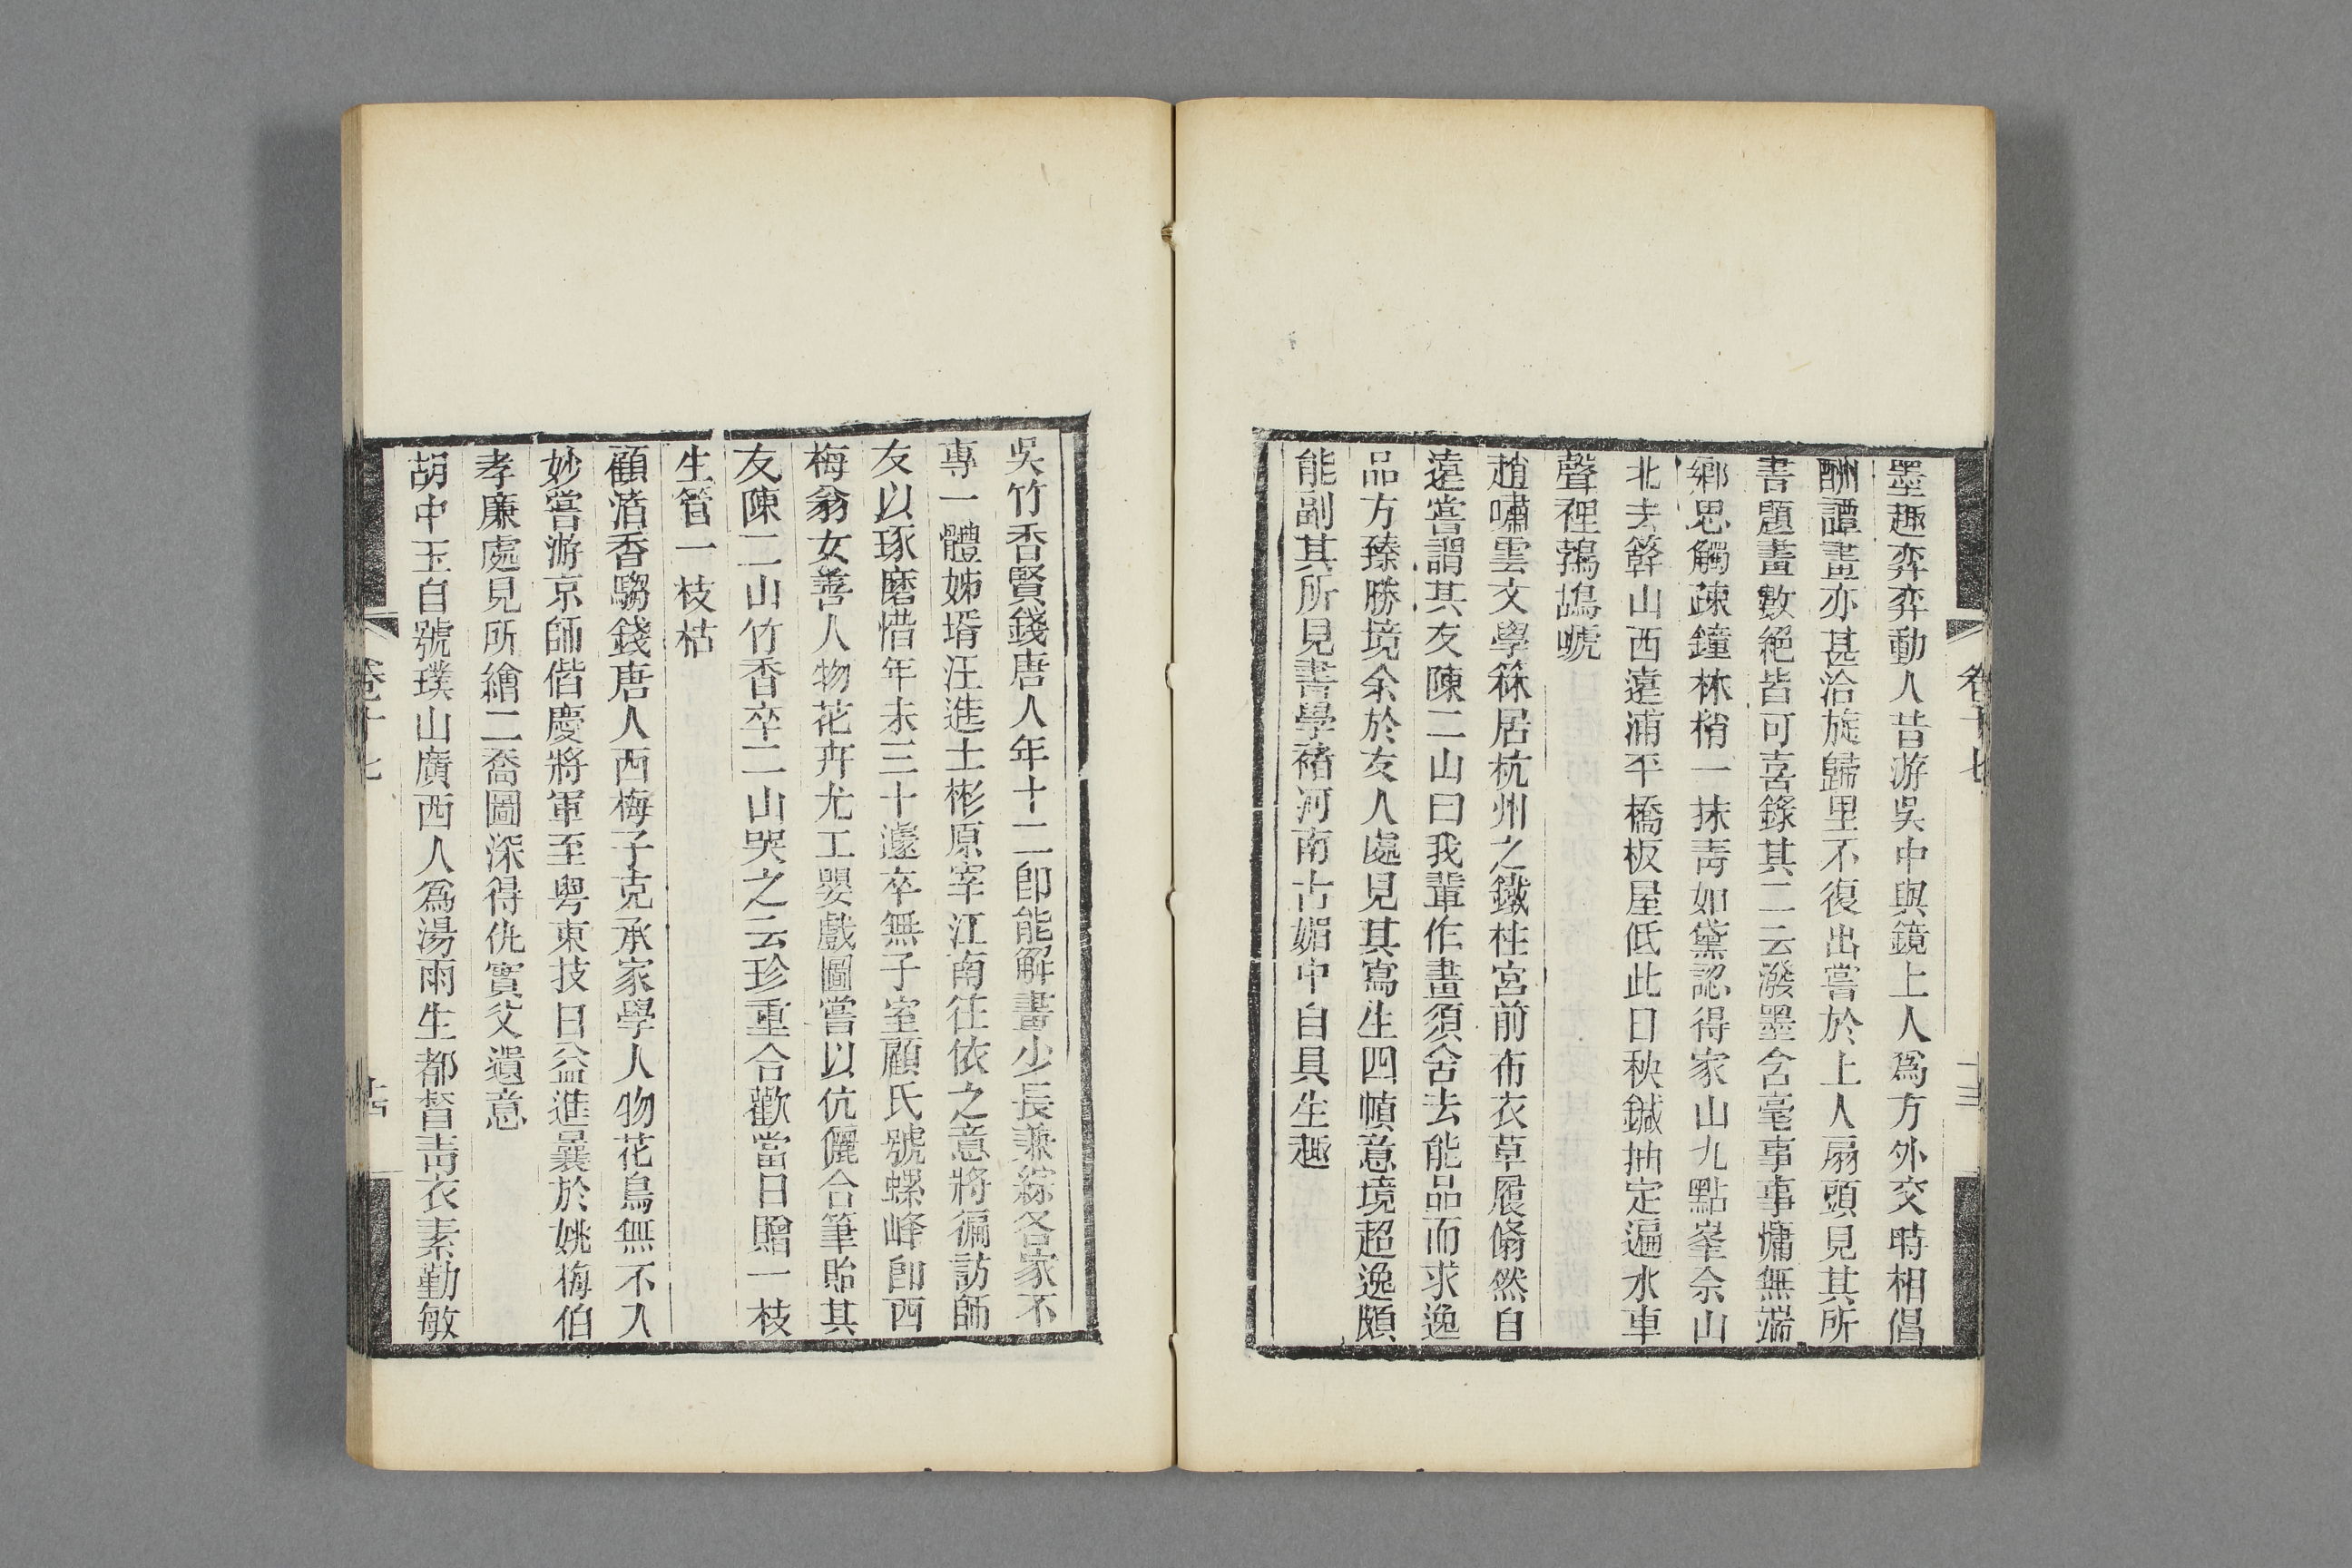 墨趣弈弈動人昔游吳中與鏡上人爲方外交時相倡
酬譚畫亦甚洽旋歸里不復出嘗於上人扇頭見其所
書題畫數絕皆可喜錄其二云潑墨含毫事事慵無端
鄉思觸疎鐘林梢一抹青如黛認得家山九點峯佘山
北去簳山西遠浦平橋板屋低此日秧鍼抽定遍水車
聲裡鵓鴣嗁
趙嘯雲文學箖居杭州之鐵柱宮前布衣草履翛然自
遠嘗謂其友陳二山曰我輩作畫須舍去能品而求逸
品方臻勝境余於友人處見其寫生四幀意境超逸頗
能副其所見書學褚河南古媚中自具生趣
卷十七
十三
吳竹香賢錢唐人年十二卽能解畫少長兼綜各家不
專一體姊壻汪進士彬原宰江南往依之意將徧訪師
友以琢磨惜年未三十遽卒無子室顧氏號螺峰卽西
梅翁女善人物花卉尤工嬰戲圖嘗以伉儷合筆貽其
友陳二山竹香卒二山哭之云珍重合歡當日贈一枝
生管一枝枯
顧渚香騶錢唐人西梅子克承家學人物花鳥無不入
妙嘗游京師偕慶將軍至粤東技日益進曩於姚梅伯
孝廉處見所繪二喬圖深得仇實父遺意
胡中玉自號璞山廣西人爲湯雨生都督靑衣素勤敏
卷十七